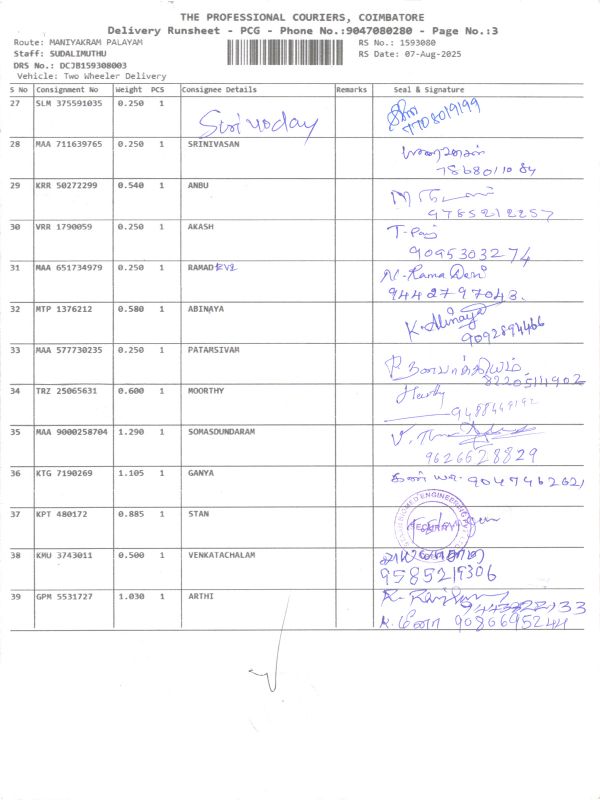 THE PROFESSIONAL COURIERS, COIMBATORE
Delivery Runsheet - PCG - Phone No.:9047080280 - Page No.:3
Route: MANIYAKRAM PALAYAM RS No.: 1593080
Staff: SUDALIMUTHU RS Date: 07-Aug-2025
DRS No.: DCJB159308003
Vehicle: Two Wheeler Delivery
S No Consignment No Weight PCS Consignee Details Remarks Seal & Signature
27 SLM 375591035 0.250 1
28 MAA 711639765 0.250 1 SRINIVASAN
29 KRR 50272299 0.540 1 ANBU
9785212257
30 VRR 1790059 0.250 1 AKASH
9095303274
31 MAA 651734979 0.250 1 RAMADEVI N. Rama Devi
9442797043.
32 MTP 1376212 0.580 1 ABINAYA K. Abinaya
9092894466
33 MAA 577730235 0.250 1 PATAMSIVAM
34 TRZ 25065631 0.600 1 MOORTHY
35 MAA 9000258704 1.290 1 SOMASDUNDARAM
9626628829
36 KTG 7190269 1.105 1 GANYA 9047462621
37 KPT 480172 0.885 1 STAN
38 KMU 3743011 0.500 1 VENKATACHALAM
9585219306
39 GPM 5531727 1.030 1 ARTHI
K. மீனா 9080695244